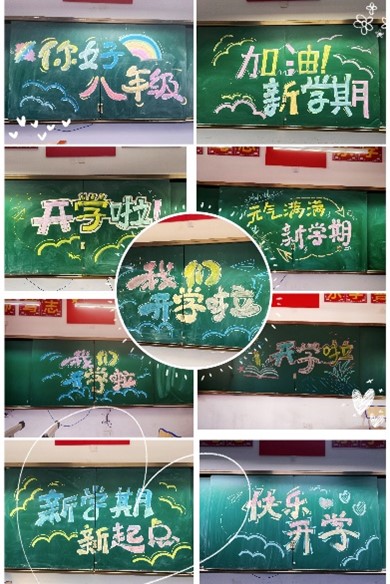 你好
八年级
加油!
新学期
开学啦!
元气满满
新学期
我们
开学啦
我们
开学啦
开学啦
新学期
新起点
快乐
开学